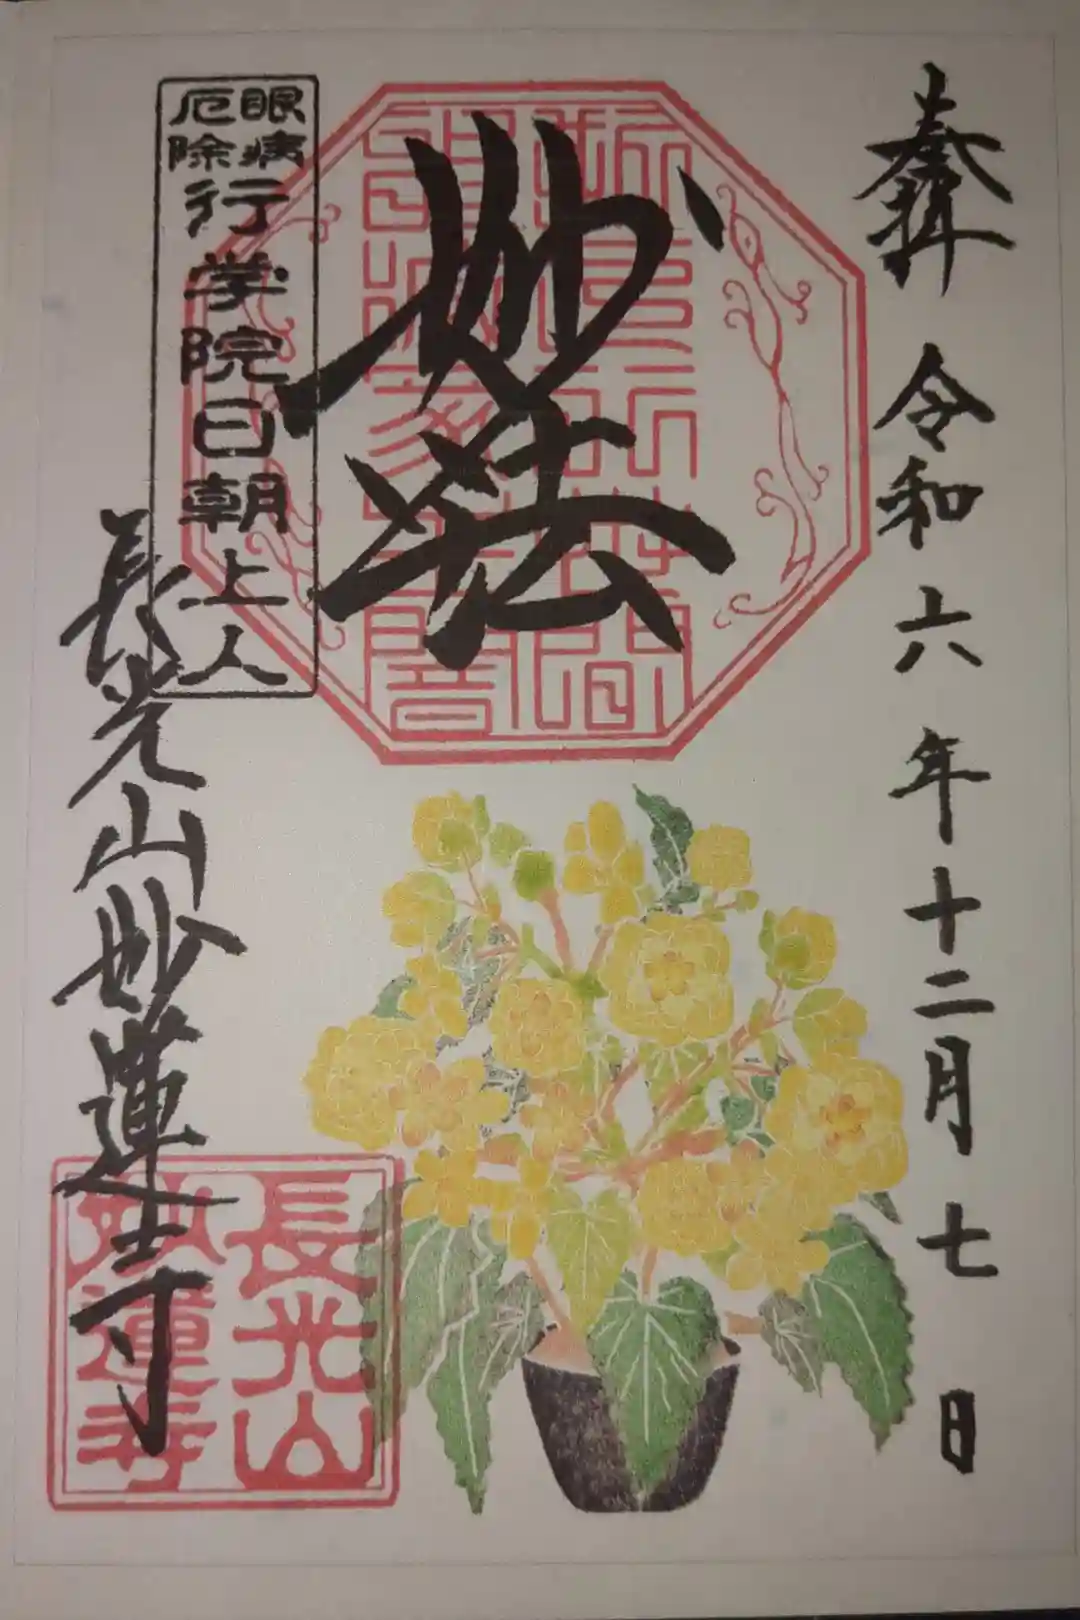 奉拝 令和六年十二月七日
妙法
眼病
厄除
行学院日朝上人
長光山妙蓮寺
長光山
妙蓮寺